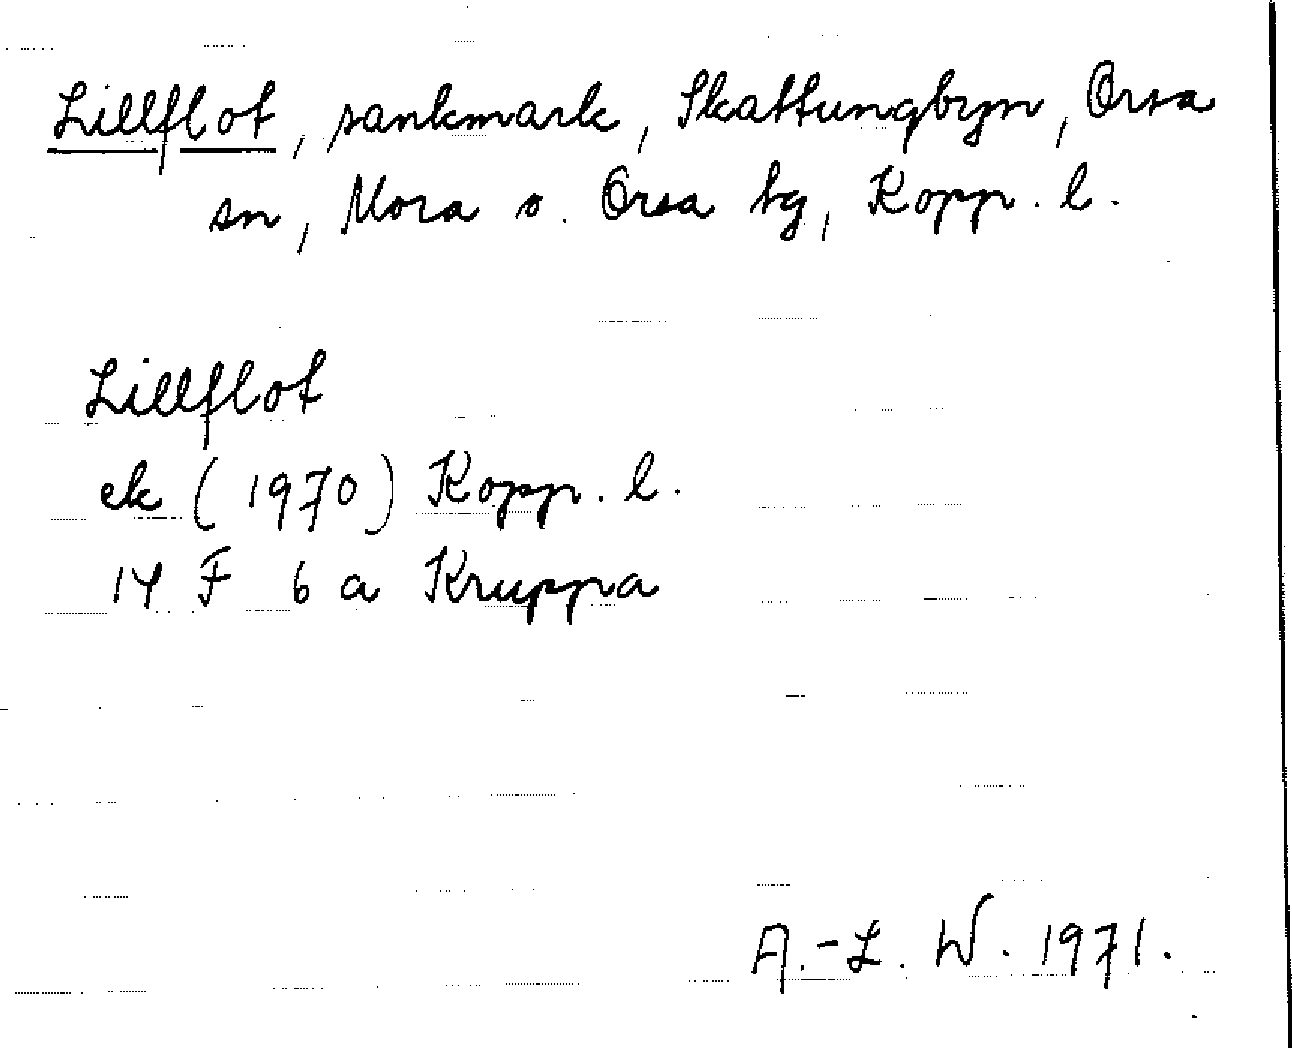 Lillflot, sankmark, Skattungbyn, Orsa
sn, Mora o. Orsa tg, Kopp. l.
Lillflot
ek (1970) Kopp. l.
14 F 6 a Kruppa
A.-L. W. 1971.